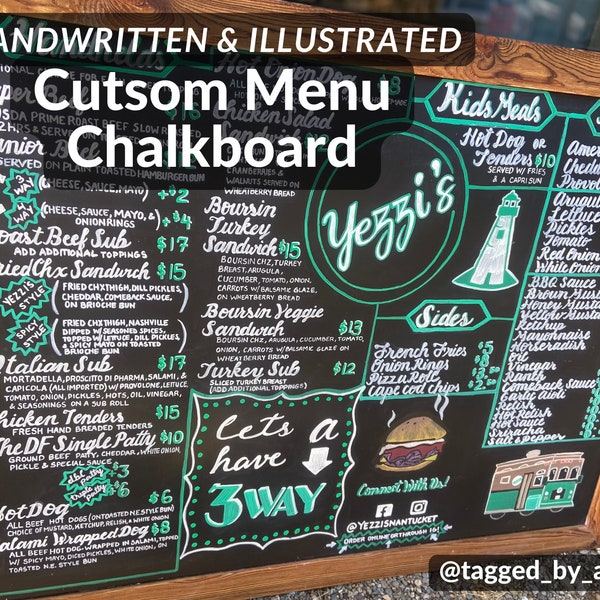 ANDWRITTEN & ILLUSTRATED
Cutsom Menu
Chalkboard
SERVED ON PLAIN TOASTED HAMBURGER BUN
3 WAY (CHEESE, SAUCE, MAYO) +$2
(CHEESE, SAUCE, MAYO, & +$4
ONION RINGS)
oast Beef Sub $17
ADD ADDITIONAL TOPPINGS
ried Chx Sandwich $15
YEZZI'S STYLE
(FRIED CHX THIGH, DILL PICKLES,
CHEDDAR, COMEBACK SAUCE,
ON BRIOCHE BUN
SPICY STYLE
(FRIED CHX THIGH, NASHVILLE
DIPPED W/ SEASONED SPICES,
TOPPED W/ LETTUCE, DILL PICKLES,
& SPICY MAYO ON TOASTED
BRIOCHE BUN
talian Sub $17
MORTADELLA, PROSCIUTTO DI PHARMA, SALAMI, &
CAPICOLA (ALL IMPORTED) W/ PROVOLONE, LETTUCE,
TOMATO, ONION, PICKLES, HOTS, OIL, VINEGAR,
& SEASONINGS ON A SUB ROLL
hicken Tenders $15
FRESH HAND BREADED TENDERS
The DF Single Patty $10
GROUND BEEF PATTY, CHEDDAR, WHITE ONION,
PICKLE & SPECIAL SAUCE
dbl patty +$3
triple patty +$6
Hot Dog $6
ALL BEEF HOT DOGS (ON TOASTED N.E. STYLE BUN)
CHOICE OF MUSTARD, KETCHUP, RELISH, & WHITE ONION
alami Wrapped Dog $8
ALL BEEF HOT DOG, WRAPPED IN SALAMI, TOPPED
W/ SPICY MAYO, DICED PICKLES, WHITE ONION, ON
TOASTED N.E. STYLE BUN
Hot Onion Dog $8
Chicken Salad
Sandwich
CRANBERRIES &
WALNUTS SERVED ON
WHEATBERRY BREAD
Boursin
Turkey
Sandwich $15
BOURSIN CHZ, TURKEY
BREAST, ARUGULA,
CUCUMBER, TOMATO, ONION,
CARROTS W/ BALSAMIC GLAZE,
ON WHEATBERRY BREAD
Boursin Veggie
Sandwich $13
BOURSIN CHZ, ARUGULA, CUCUMBER, TOMATO,
ONION, CARROTS W/ BALSAMIC GLAZE ON
WHEATBERRY BREAD
Turkey Sub $12
SLICED TURKEY BREAST
(ADD ADDITIONAL TOPPINGS)
lets a
have
3 WAY
Yezzi's
Kids Meals
Hot Dog OR
Tenders $10
SERVED W/ FRIES
& A CAPRI SUN
Sides
French Fries $5
Onion Rings
Pizza Role
Cape cod Chips
Connect With Us!
@YEZZISNANTUCKET
ORDER ONLINE
Ame
Chedda
Provol
Arugul
Lettuce
Pickles
Tomato
Red Onion
White Onion
BBQ Sauce
Brown Must
Honey Mustar
Yellow Mustar
Ketchup
Mayonnaise
Horseradish
Oil
Vinegar
Comeback Sauce
Garlic Aioli
Relish
Hot Relish
Hot Sauce
Sriracha
Salt & Pepper
@tagged_by_a